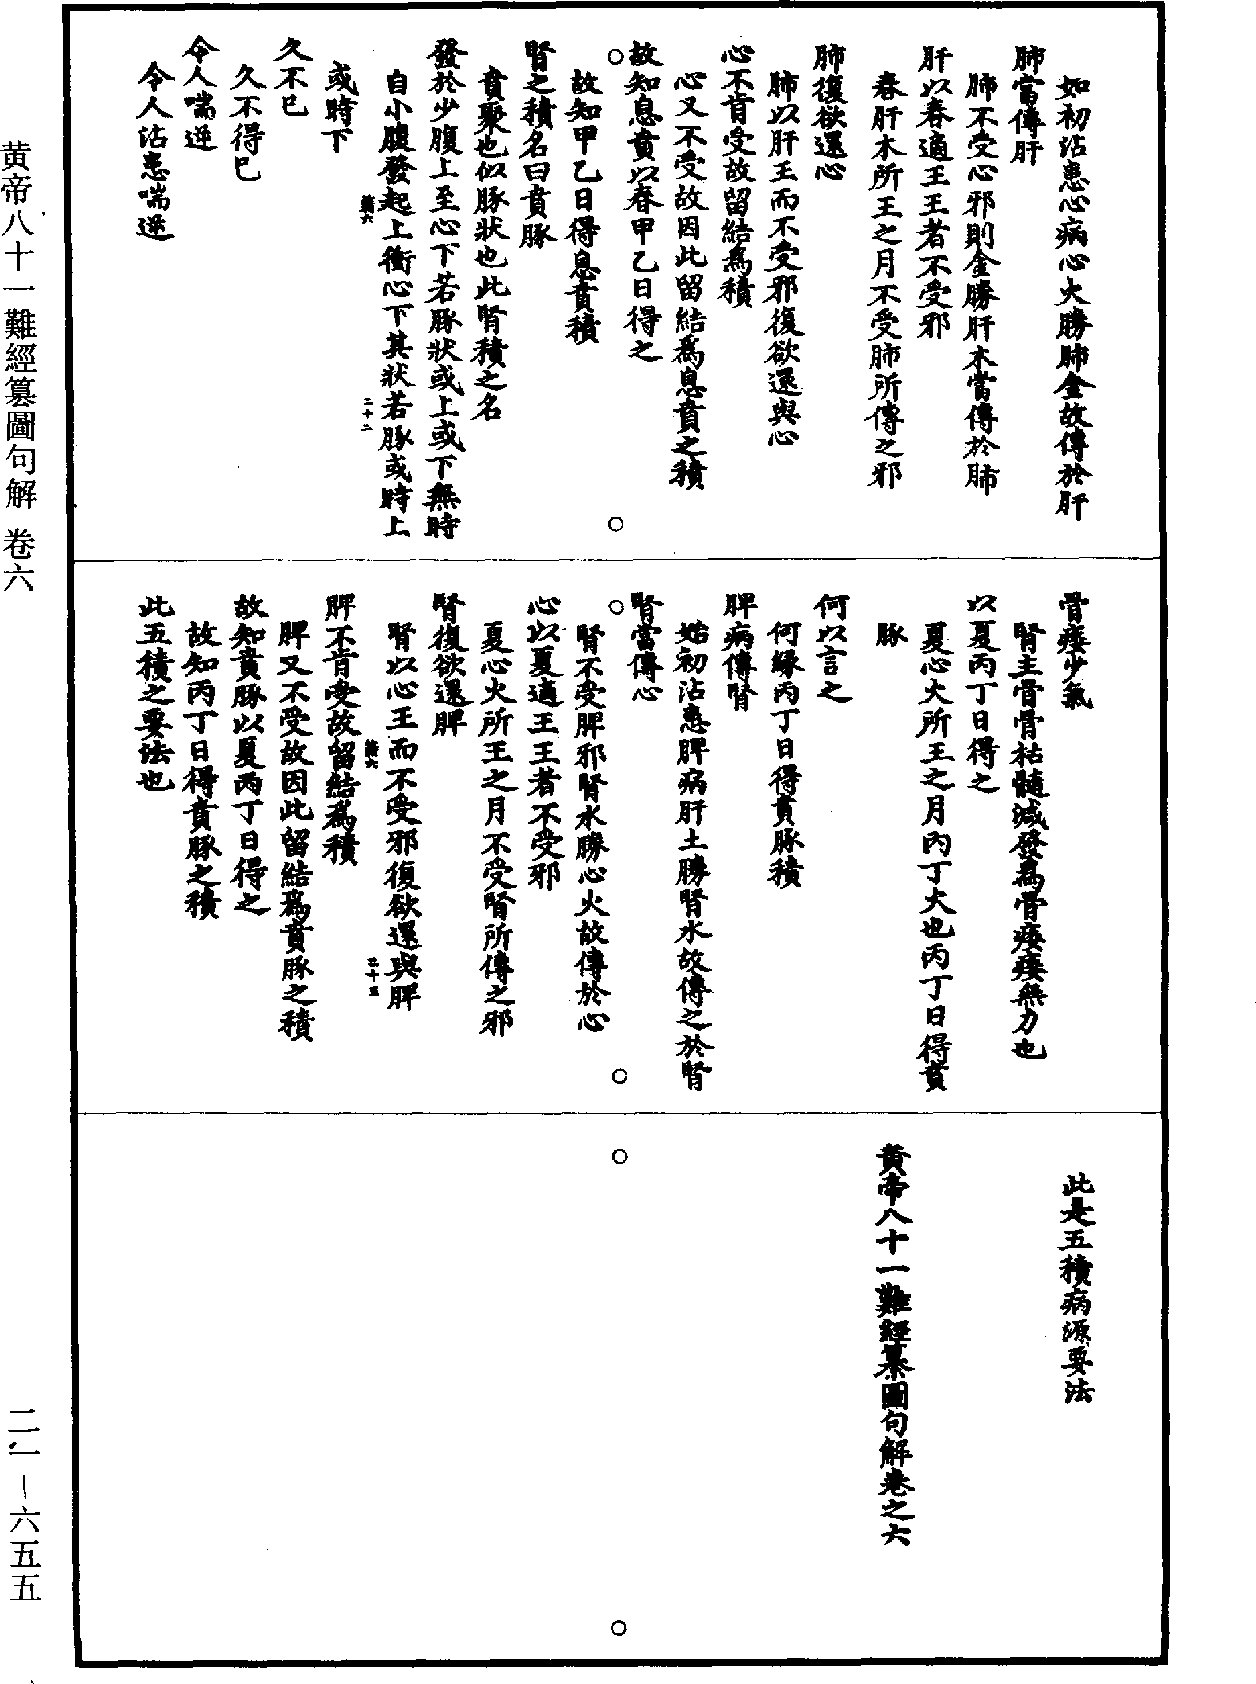 如初沾患心病心火勝肺金故傳於肝
肺當傳肝
肺不受心邪則金勝肝木當傳於肺
肝以春適王王者不受邪
春肝木所王之月不受肺所傳之邪
肺復欲還心
肺以肝王而不受邪復欲還與心
心不肯受故留結爲積
心又不受故因此留結爲息賁之積
故知息賁以春甲乙日得之
故知甲乙日得息賁積
腎之積名曰賁豚
賁聚也似豚狀也此腎積之名
發於少腹上至心下若豚狀或上或下無時
自小腹發起上衝心下其狀若豚或時上
或時下
久不已
久不得已
令人喘逆
令人沾患喘逆
骨痿少氣
腎主骨骨枯髓減發爲骨痿痿無力也
以夏丙丁日得之
夏心火所王之月丙丁火也丙丁日得賁
豚
何以言之
何緣丙丁日得賁豚積
脾病傳腎
始初沾患脾病肝土勝腎水故傳之於腎
腎當傳心
腎不受脾邪腎水勝心火故傳於心
心以夏適王王者不受邪
夏心火所王之月不受腎所傳之邪
腎復欲還脾
腎以心王而不受邪復欲還與脾
脾不肯受故留結爲積
脾又不受故因此留結爲賁豚之積
故知賁豚以夏丙丁日得之
故知丙丁日得賁豚之積
此五積之要法也
此是五積病源要法
黄帝八十一難經纂圖句解卷之六
黄帝八十一難經纂圖句解 卷六
二一－六五五